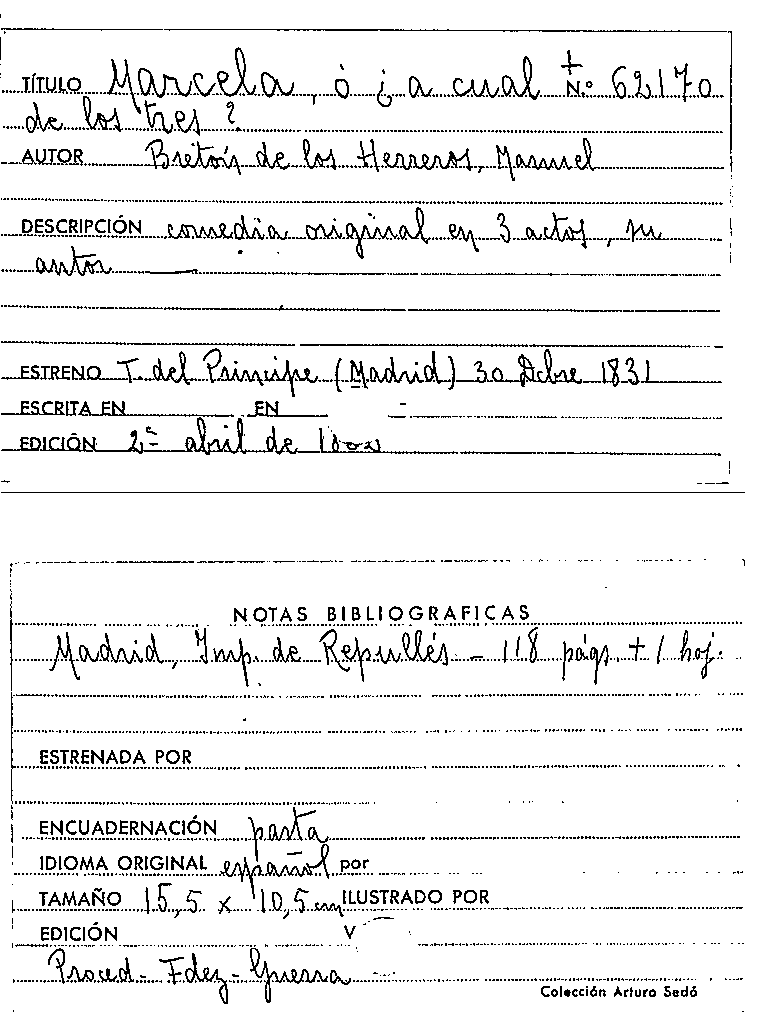 TÍTULO Marcela, ó ¿a cual N.º 62170
de los tres?
AUTOR Bretón de los Herreros, Manuel
DESCRIPCIÓN comedia original en 3 actos, su
autor
ESTRENO T. del Príncipe (Madrid) 30 Dcbre 1831
ESCRITA EN EN
EDICIÓN 2ª abril de
NOTAS BIBLIOGRAFICAS
Madrid, Imp. de Repullés - 118 págs + 1 hoj.
ESTRENADA POR
ENCUADERNACIÓN pasta
IDIOMA ORIGINAL español por
TAMAÑO 15,5 x 10,5 cm ILUSTRADO POR
EDICIÓN V
Proced- Fdez-Guerra
Colección Arturo Sedó